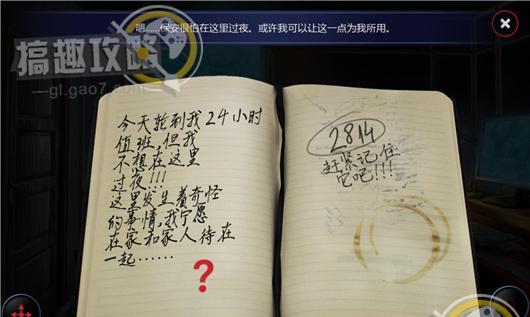 嗯……保安很怕在这里过夜。或许我可以让这一点为我所用。
搞趣攻略
gl.gao7.com
今天轮到我24小时
值班,但我
不想在这里
过夜!!!
这里发生着奇怪
的事情,我宁愿
在家和家人待在
一起……
?
2814
赶紧记住
它吧!!!